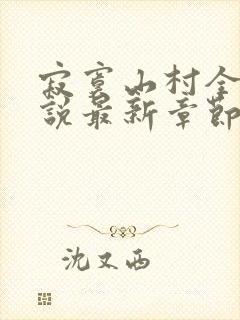 寂寞山村全
説最新章節
沈又西